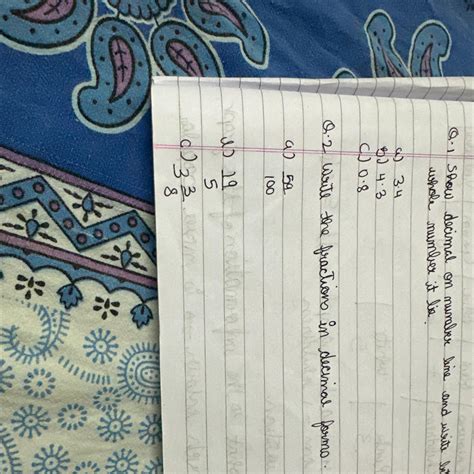 Q.1 Show decimal on number line and write
whole number it lie.
a) 3.4
b) 4.3
c) 0.8
Q.2 Write the fractions in decimal forms.
a) 59/100
b) 19/5
c) 3 3/8